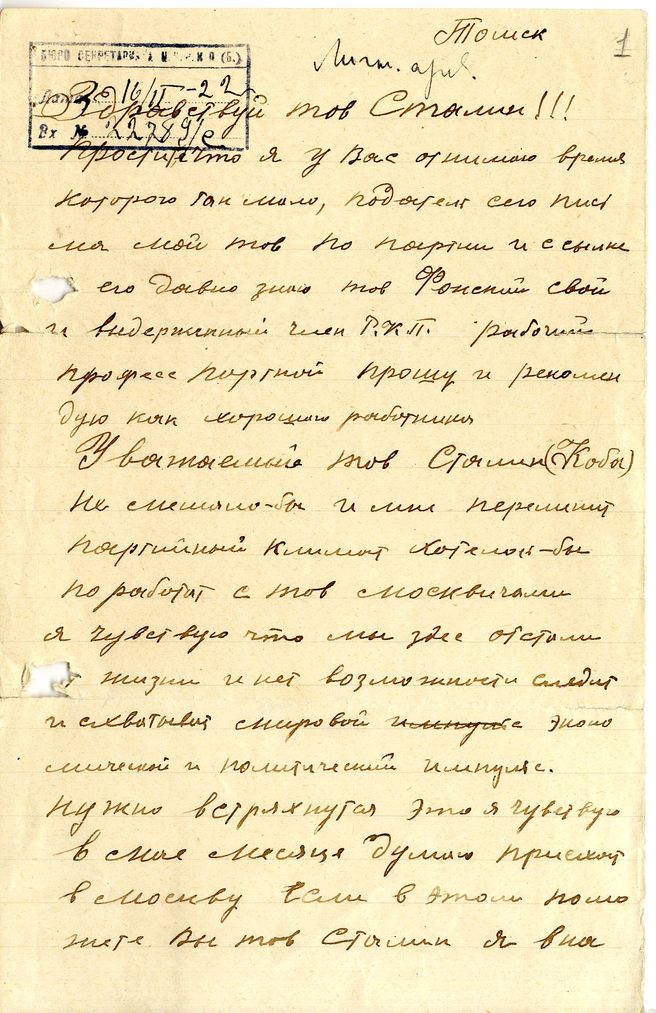 Томск
1
Личн. арх.
БЮРО СЕКРЕТАРИАТА Ц.К.Р.К.П (б.)
Дата 16/II-22
Вх № 22289/с
Здравствуй тов Сталин!!!
Простите что я у Вас отнимаю время
которого так мало, податель сего пись
ма мой тов по партии и ссылке
его давно знаю тов Фонский свой
и выдержанный член Р.К.П. рабочий
професс портной прошу и рекомен
дую как хорошего работника
Уважаемый тов Сталин (Коба)
не мешало-бы и мне переменит
партийный климат хотелось-бы
поработат с тов москвичами
я чувствую что мы здес отстали
жизни и нет возможности следит
и схватыват мировой импулс эконо
мической и политический импулс.
Нужно встряхнутся это я чувствую
в мае месяце думаю приехат
в Москву Если в этом помо
жете Вы тов Сталин я впа